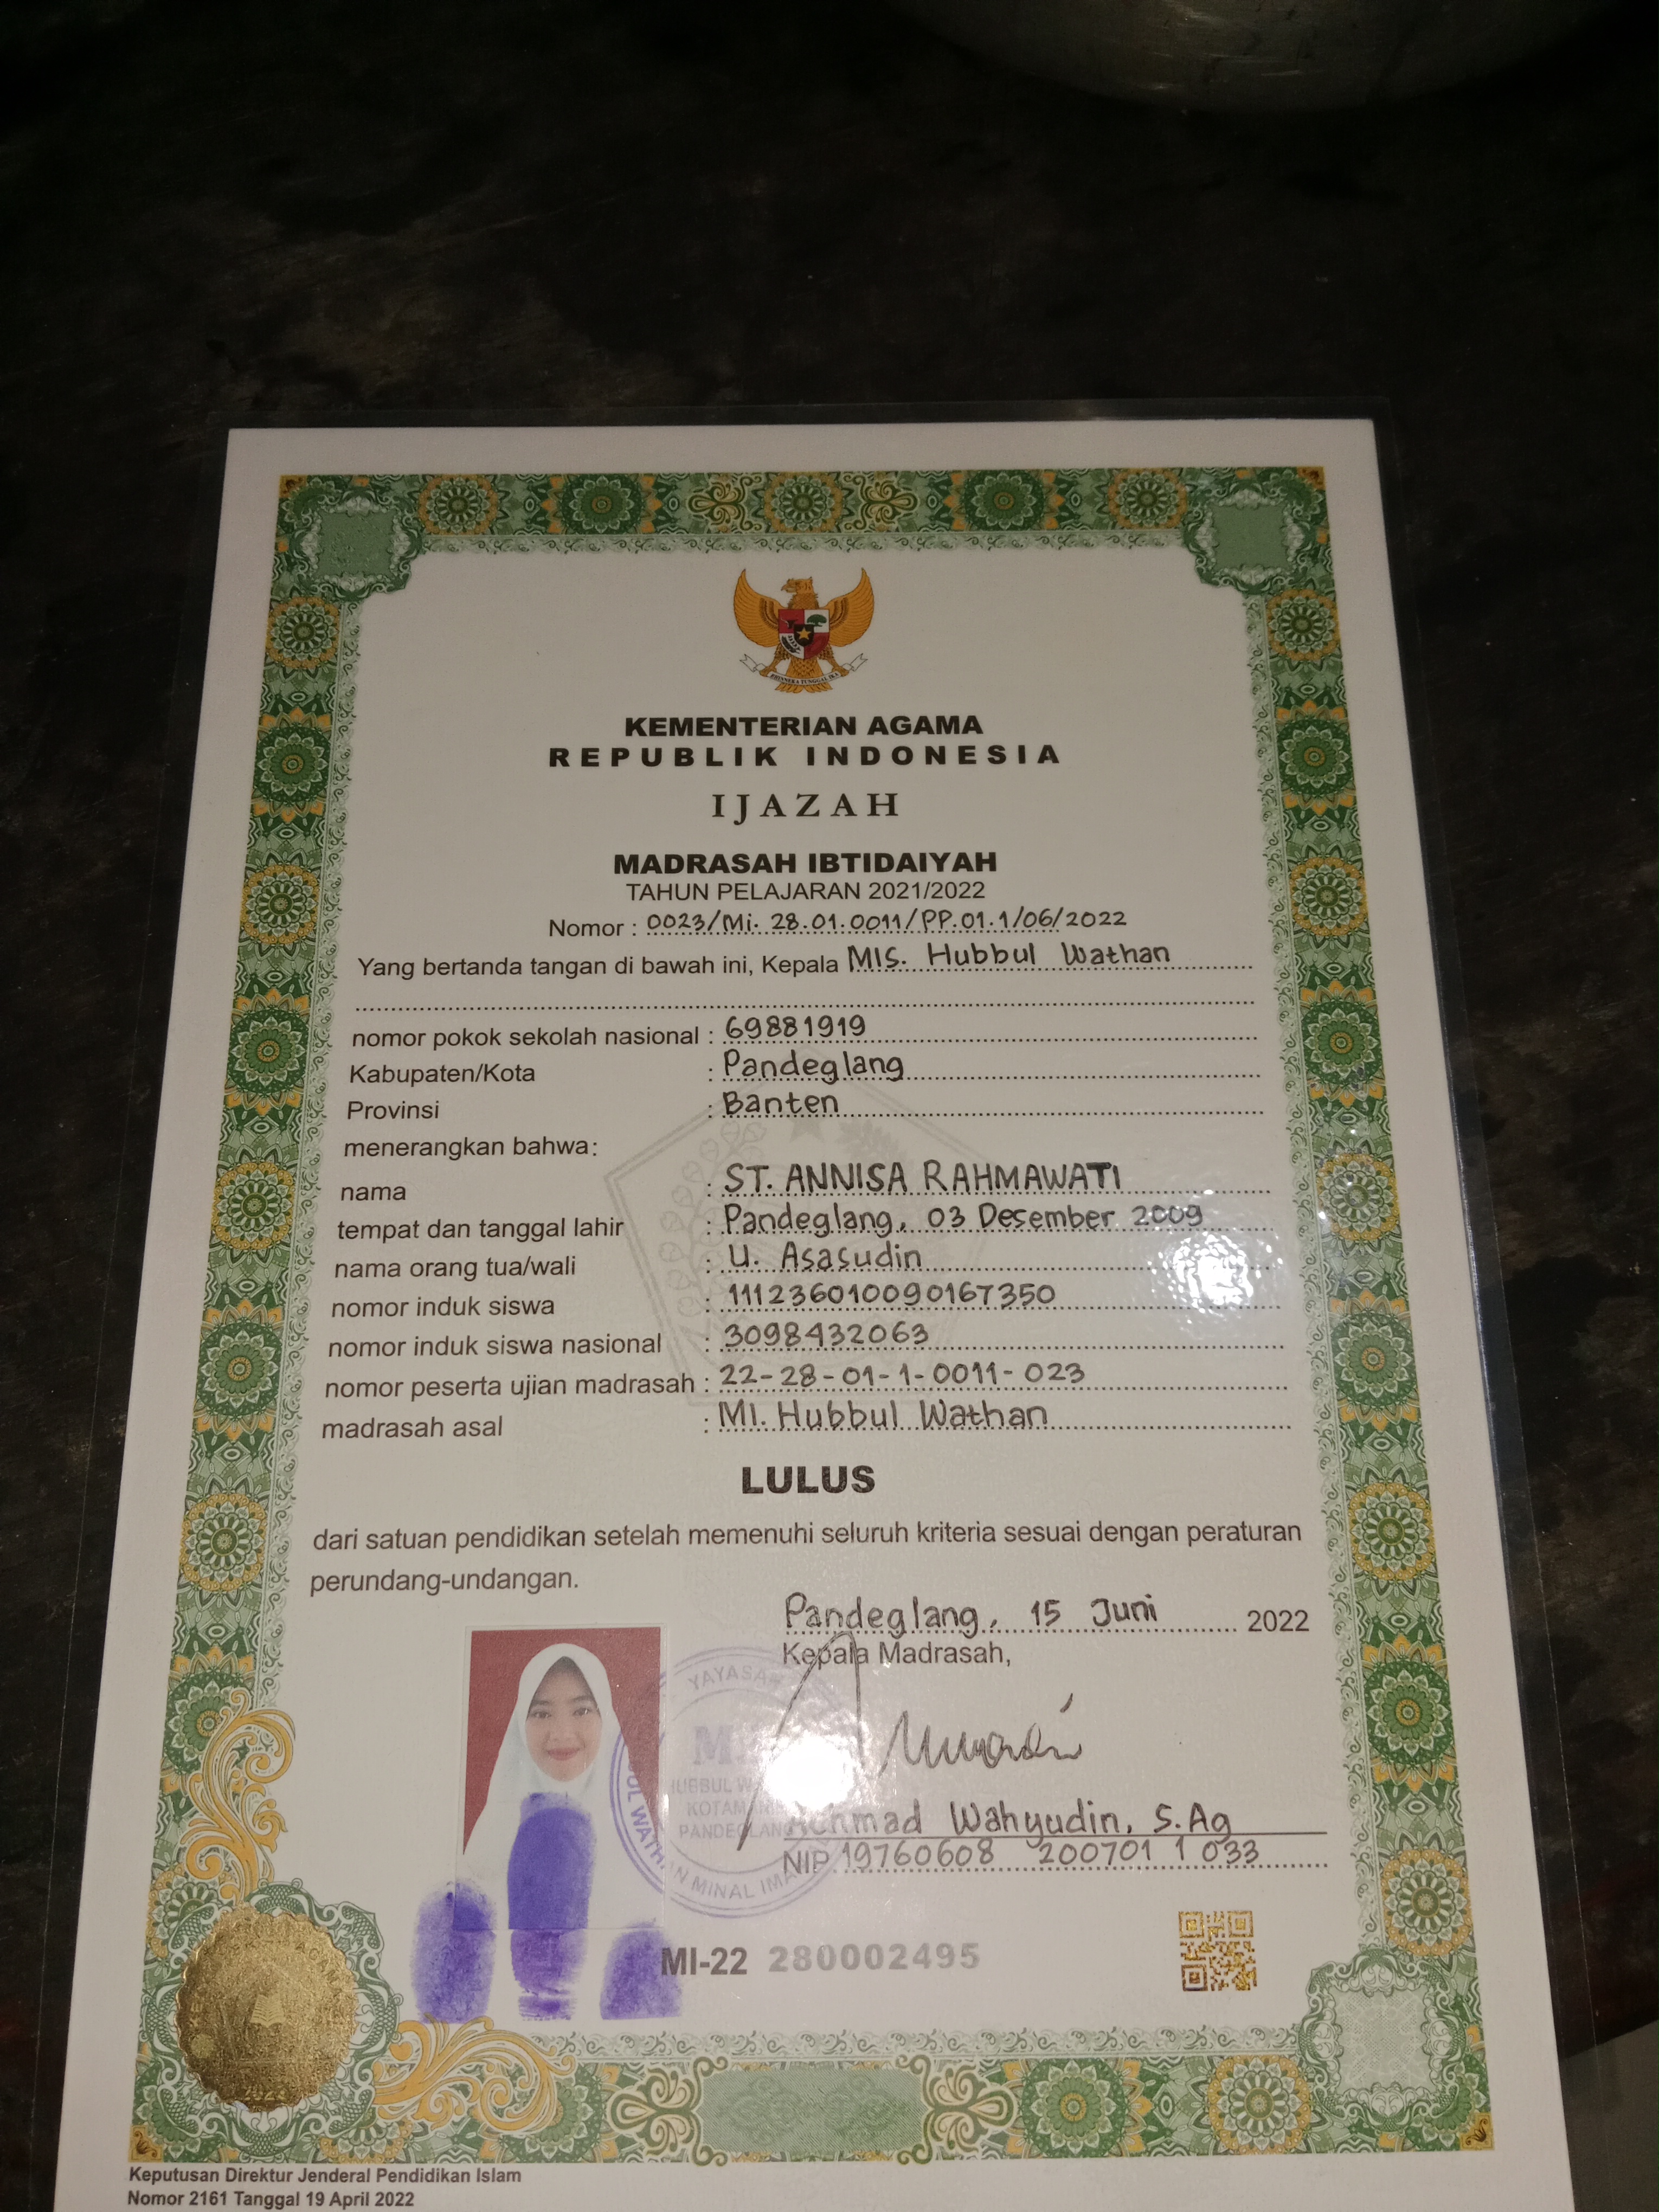 BHINNEKA TUNGGAL IKA
KEMENTERIAN AGAMA
REPUBLIK INDONESIA
IJAZAH
MADRASAH IBTIDAIYAH
TAHUN PELAJARAN 2021/2022
Nomor : 0023/Mi. 28.01.0011/PP.01.1/06/2022
Yang bertanda tangan di bawah ini, Kepala MIS. Hubbul Wathan
nomor pokok sekolah nasional : 69881919
Kabupaten/Kota : Pandeglang
Provinsi : Banten
menerangkan bahwa:
nama : ST. ANNISA RAHMAWATI
tempat dan tanggal lahir : Pandeglang, 03 Desember 2009
nama orang tua/wali : U. Asasudin
nomor induk siswa : 111236010090167350
nomor induk siswa nasional : 3098432063
nomor peserta ujian madrasah : 22-28-01-1-0011-023
madrasah asal : MI. Hubbul Wathan
LULUS
dari satuan pendidikan setelah memenuhi seluruh kriteria sesuai dengan peraturan
perundang-undangan.
Pandeglang, 15 Juni 2022
Kepala Madrasah,
YAYASAN
HUBBUL
PANDEGLANG
WATHAN MINAL IMAN
Achmad Wahyudin, S.Ag
NIP 19760608 200701 1 033
MI-22 280002495
2022
Keputusan Direktur Jenderal Pendidikan Islam
Nomor 2161 Tanggal 19 April 2022